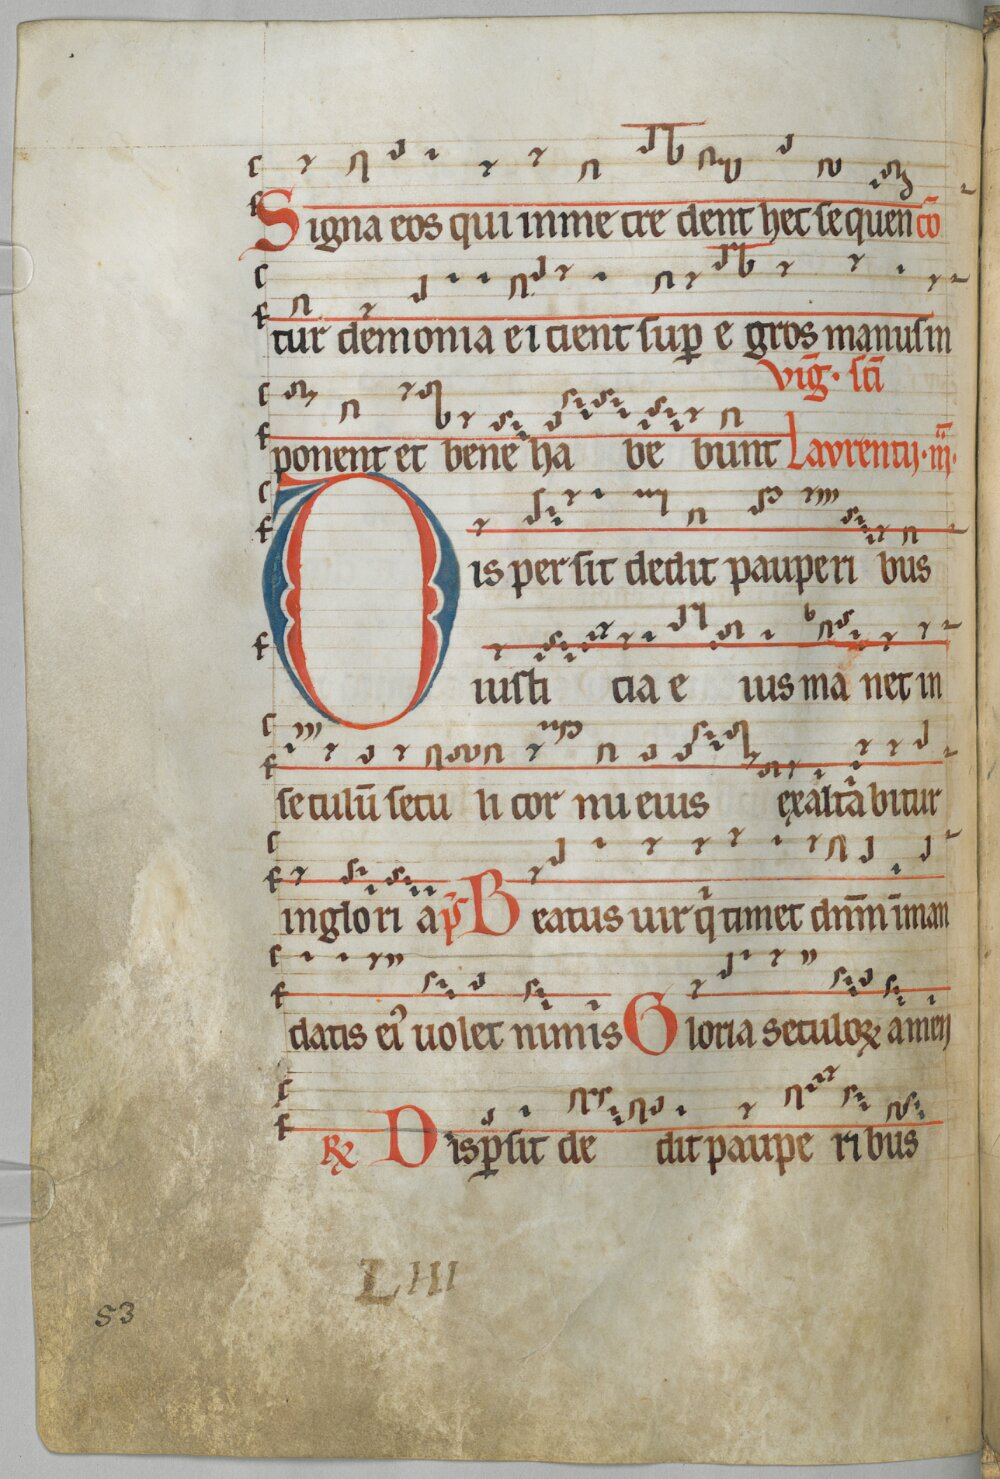 Signa eos qui in me cre dent hec sequen cō
tur demonia e i cient sup̱ e gros manus in
viḡ. sc̄i
ponent et bene ha be bunt Laurentij. iij.
Dis persit dedit pauperi bus
iusti cia e ius ma net in
seculū secu li cor nu eius exaltabitur
in glori a p̄s Beatus uir q̄ timet dn̄m ī man
datis ei' uolet nimis Gloria seculoꝝ amen
℞ Disp̱sit de dit paupe ribus
LIII
53